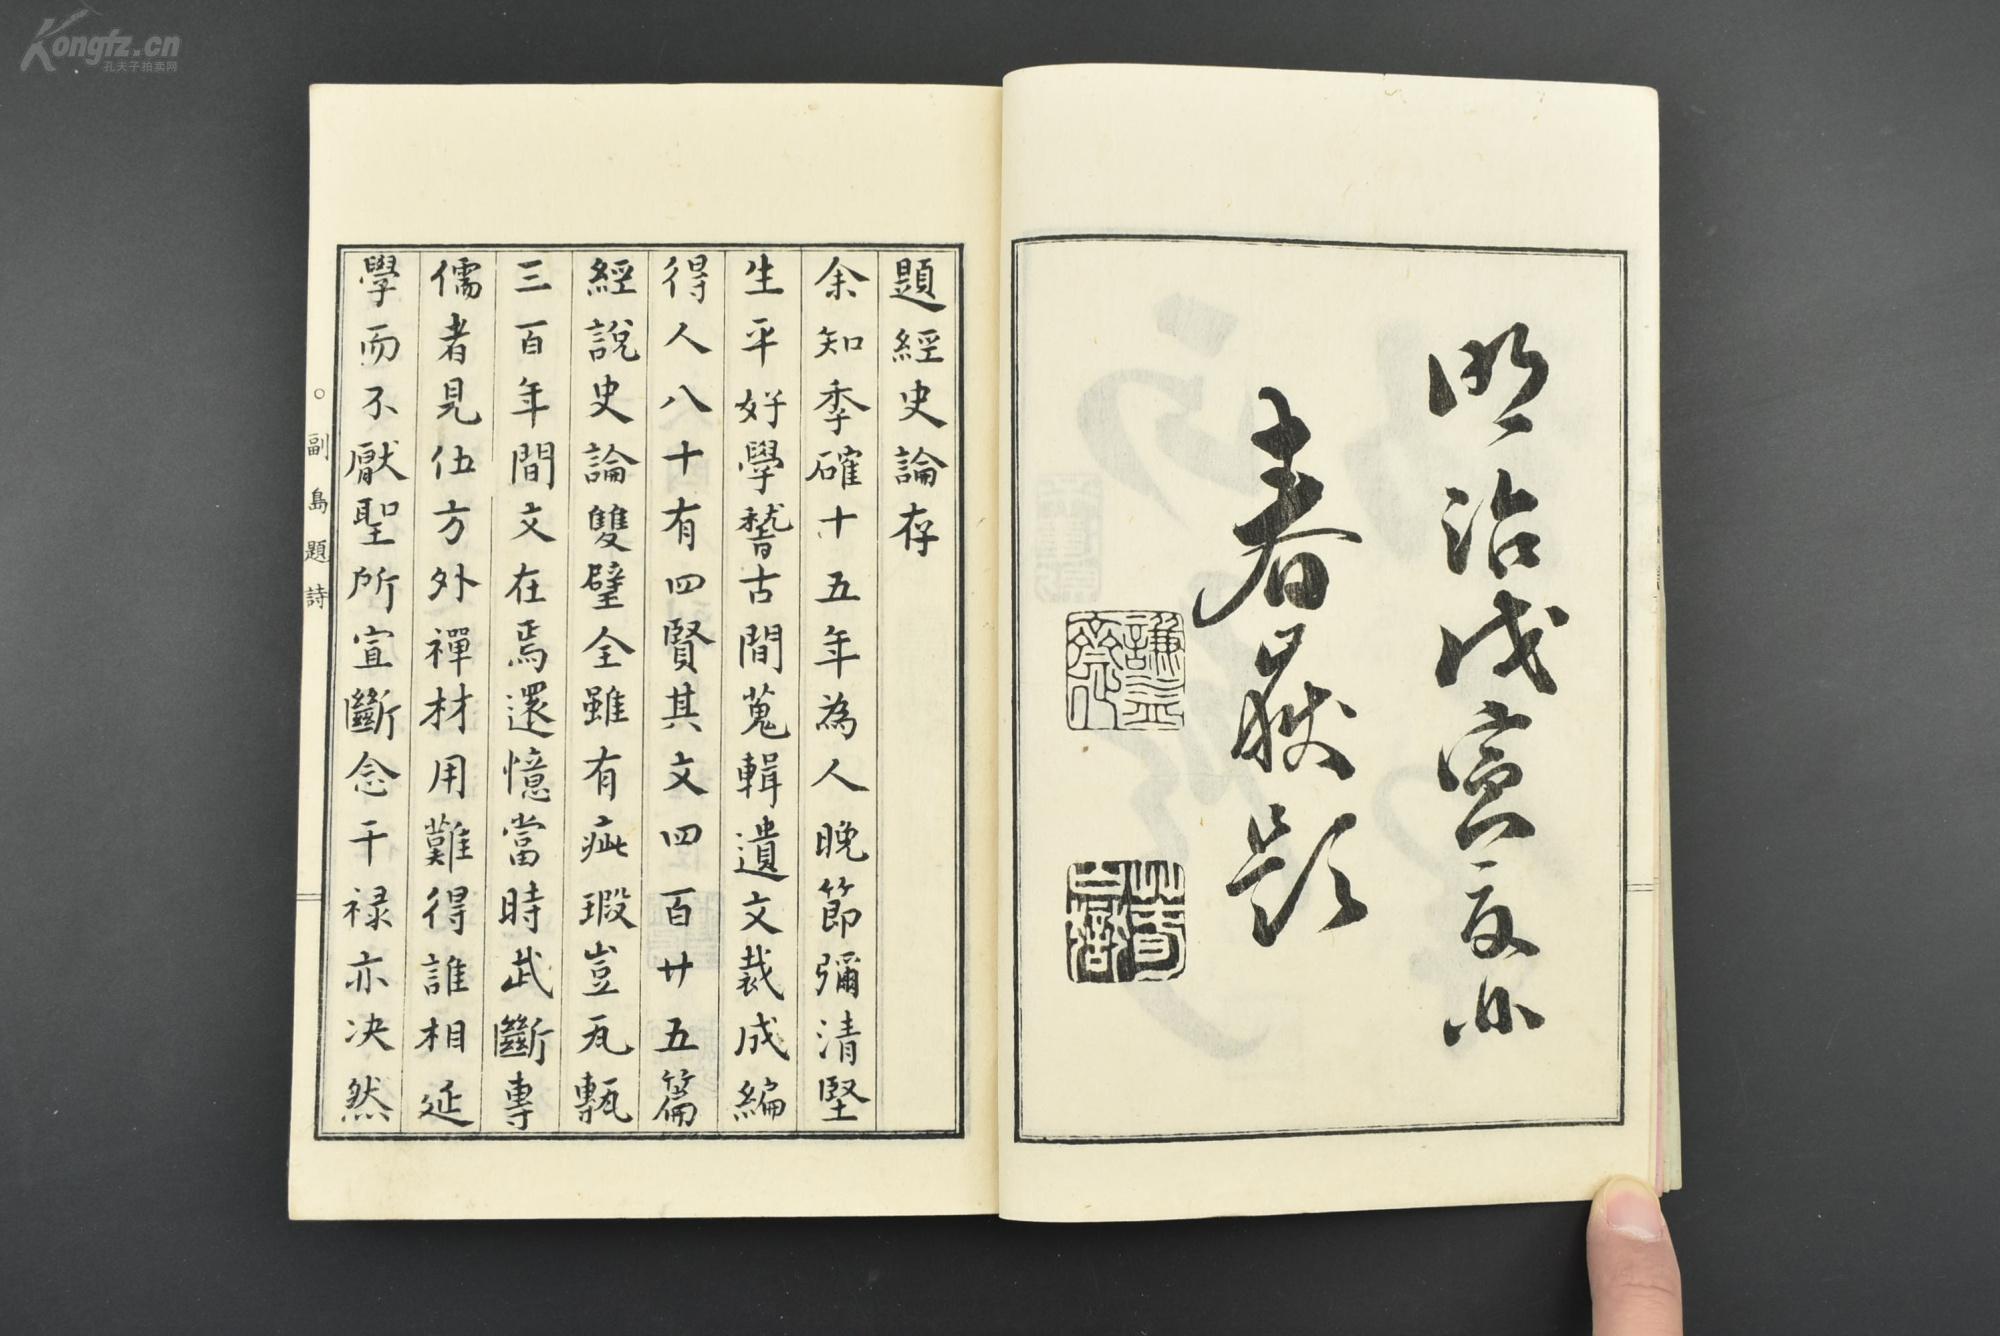 Kongfz.cn
孔夫子拍卖网
明治戊寅夏日
春嶽題
謙益
齋
題經史論存
余知季確十五年為人晚節彌清堅
生平好學稽古間蒐輯遺文裁成編
得人八十有四賢其文四百廿五篇
經說史論雙璧全雖有疵瑕豈瓦甎
三百年間文在焉還憶當時武斷專
儒者見伍方外禪材用難得誰相延
學而不厭聖所宣斷念干祿亦決然
副島題詩